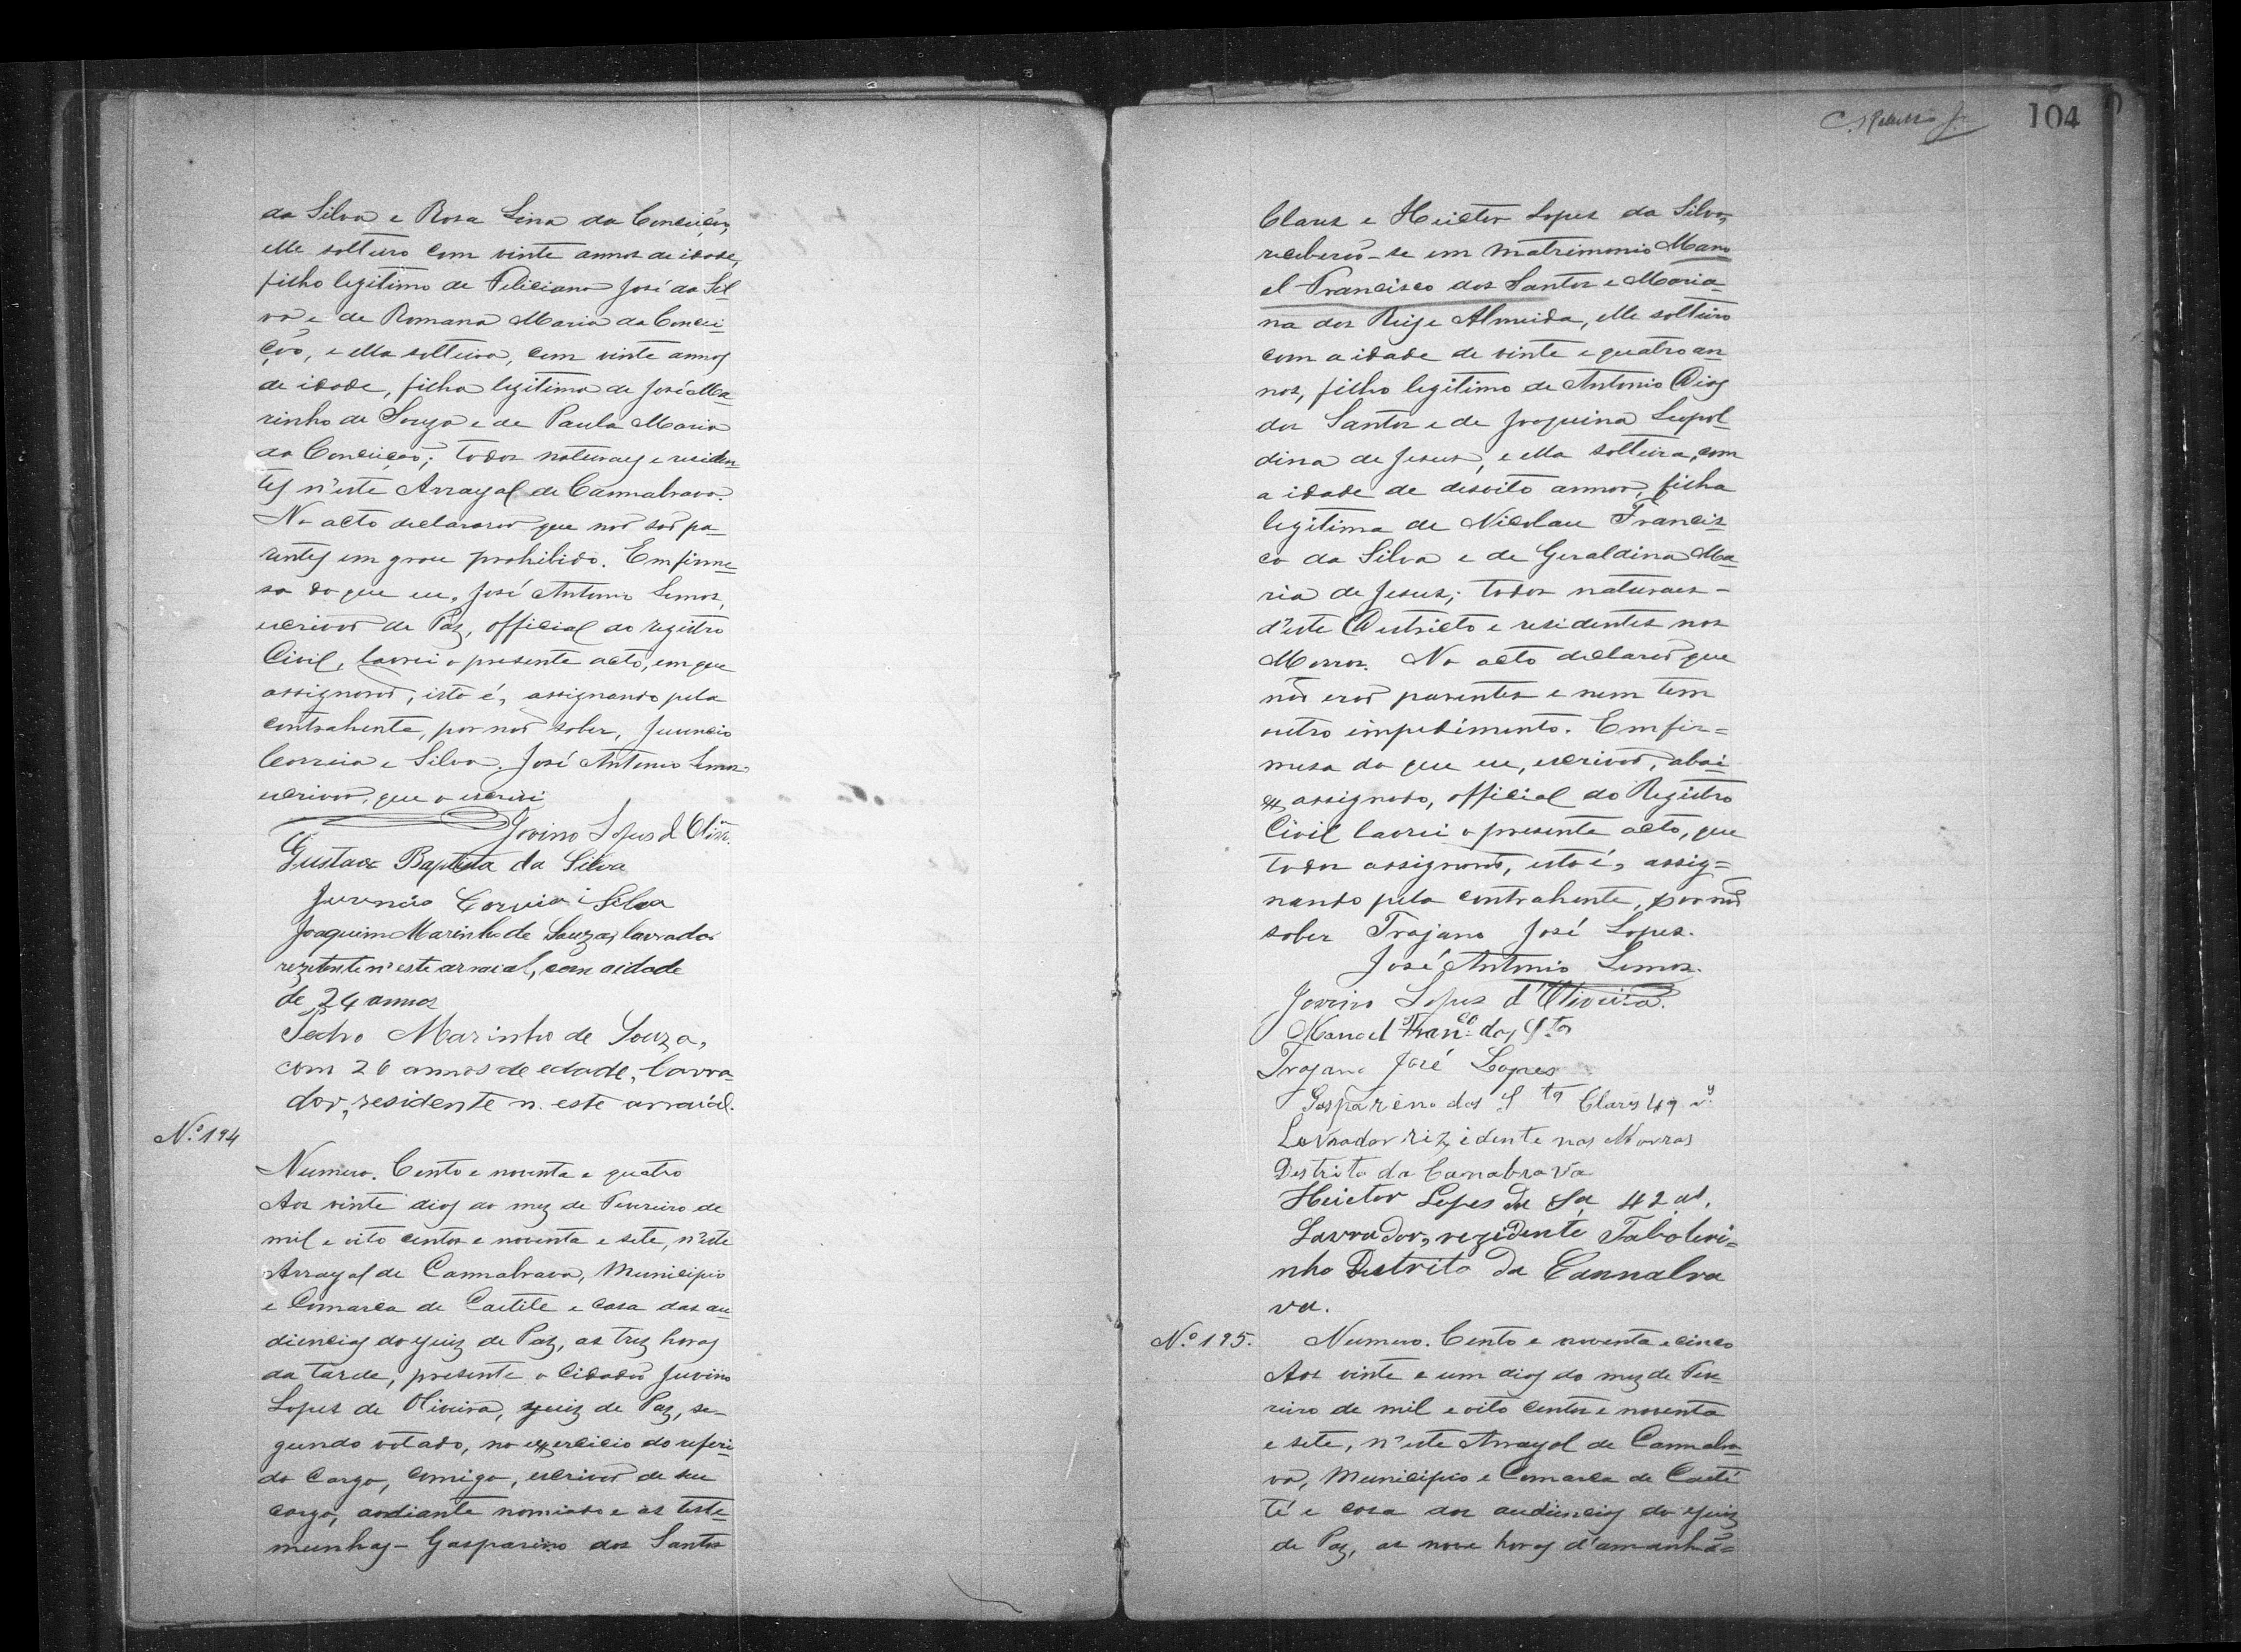 da Silva e Rosa Lina da Conceição,
elle solteiro com vinte annos de idade,
filho legitimo de Feliciano José da Sil-
va e de Romana Maria da Concei-
ção, e ella solteira, com vinte annos
de idade, filha legitima de José Ma-
rinho de Souza e de Paula Maria
da Conceição; todos naturaes e residen-
tes n'este Arrayal de Cannabrava.
No acto declararão que não são pa-
rentes em grau prohibido. Em firme-
sa do que eu, José Antonio Lemos,
escrivão de Paz, official do registro
Civil, lavrei o presente acto, em que
assignarão, isto é, assignando pela
contrahente, por não saber, Juvencio
Correia e Silva. José Antonio Lemos
escrivão, que o escrevi
Jovino Lopes d'Olivª.
Gustavo Baptista da Silva
Juvencio Correia i Silva
Joaquim Marinho de Souza, lavrador
rezidente n'este arraial, com a idade
de 24 annos
Pedro Marinho de Souza,
com 26 annos de edade, lavra-
dor, residente n. este arraial.
Nº. 194
Numero. Cento e noventa e quatro
Aos vinte dias do mez de Fevreiro de
mil e oito centos e noventa e sete, n'este
Arrayal de Cannabrava, Municipio
e Comarca de Caetite e casa das au
diencias do Juiz de Paz, as trez horas
da tarde, presente o Cidadão Juvino
Lopes de Oliveira, Juiz de Paz, se-
gundo votado, no exercicio do referi-
do Cargo, comigo, escrivão de seu
cargo, aodiante nomiado e as teste-
munhas - Gasparino dos Santos
104
Claris e Heictor Lopes da Silva,
receberão-se em matrimonio Mano
el Francisco dos Santos e Maria-
na dos Reis e Almeida, elle solteiro
com a idade de vinte e quatro an
nos, filho legitimo de Antonio Dias
dos Santos e de Joaquina Leopol-
dina de Jesus, e ella solteira, com
a idade de desoito annos, filha
legitima de Nicolau Francis
co da Silva e de Geraldina Ma-
ria de Jesus; todos naturaes -
d'este Destricto e residentes nos
Morros. No acto declarão que
não erão parentes e nem tem
outro impedimento. Em fir=
mesa do que eu, escrivão, abai-
xo assignado, official do Registro
Civil lavrei o presente acto, que
todos assignarão, isto é, assig=
nando pela contrahente, por não
saber Trajano José Lopes.
José Antonio Lemos.
Jovino Lopes d'Oliveira.
Manoel Franco. dos Stos
Trajano José Lopes
Gasparino dos Stos Claris 49
Lavrador rizidente nos Morros
Destrito da Canabrava
Heictor Lopes da Sª 42 as.
Lavrador, rezidente Taboleri=
nho Destrito da Cannabra
va.
Nº. 195.
Numero. Cento e noventa e cinco
Aos vinte e um dias do mez de Fev-
reiro de mil e oito centos e noventa
e sete, n'este Arrayal de Cannabra-
va, Municipio e Comarca de Caeti-
té e casa das audiencias do Juiz
de Paz, as nove horas d'amanhã=